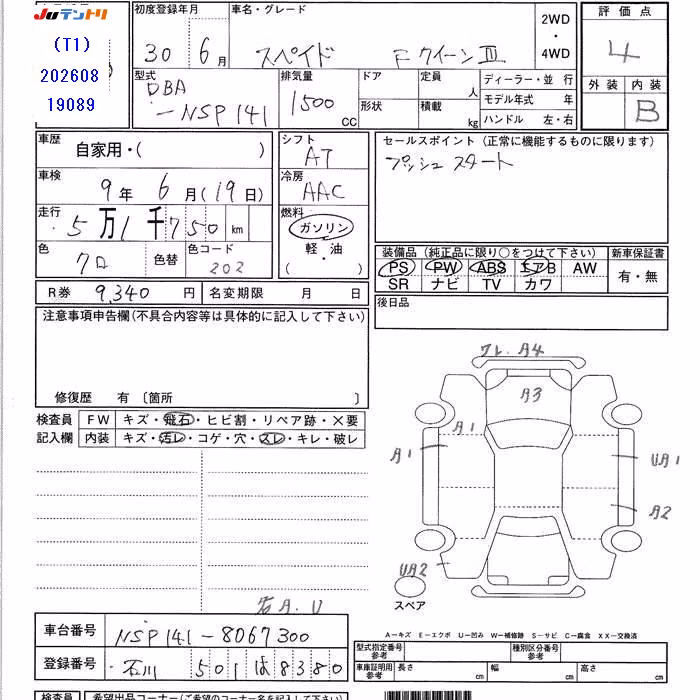 JUテントリ
(T1)
202608
19089
初度登録年月
30 6月
車名・グレード
スペイド Fクイーン Ⅲ
2WD
・
4WD
評価点
4
外装 内装
B
型式
DBA
-NSP141
排気量
1500 CC
ドア
形状
定員 人
積載 kg
ディーラー・並 行
モデル年式 年
ハンドル 左・右
車歴
自家用・( )
シフト
AT
セールスポイント(正常に機能するものに限ります)
プッシュスタート
車検
9年 6月(19日)
冷房
AAC
走行
5万1千750km
燃料
ガソリン
軽・油
( )
色
クロ
色替
色コード
202
装備品(純正品に限り○をつけて下さい)
PS PW ABS エアB AW
SR ナビ TV カワ
新車保証書
有・無
R券 9,340円
名変期限 月 日
後日品
注意事項申告欄(不具合内容等は具体的に記入して下さい)
修復歴 有 〔箇所 〕
検査員
記入欄
FW キズ・飛石・ヒビ割・リペア跡・×要
内装 キズ・汚レ・コゲ・穴・スレ・キレ・破レ
ワレ.A4
A3
A1
A1
UA1
A2
UA2
スペア
石A.U
A-キズ E-エクボ U-凹み W-補修跡 S-サビ C-腐食 XX-交換済
車台番号 NSP141-8067300
登録番号 石川 501は8380
型式指定番号
参考
種別区分番号
参考
車庫証明用
参考
長さ cm
幅 cm
高さ cm
検査員
希望出品コーナー(ご希望のコーナー名を記入して下さい)